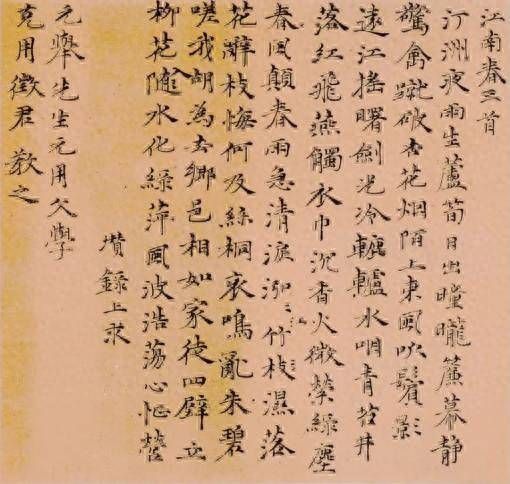 江南春三首
汀洲夜雨生蘆筍日出曈曨簾幕靜
驚禽蹴破杏花烟陌上東風吹鬢影
遠江搖曙劍光冷轆轤水咽青苔井
落紅飛燕觸衣巾沉香火微縈綠塵
春風顛春雨急清淚泓〻江竹枝濕落
花辭枝悔何及絲桐哀鳴亂朱碧
嗟我胡為去鄉邑相如家徒四壁立
柳花入隨水化綠萍風波浩蕩心怔營
瓚錄上求
元舉先生元用文學
克用徵君 教之